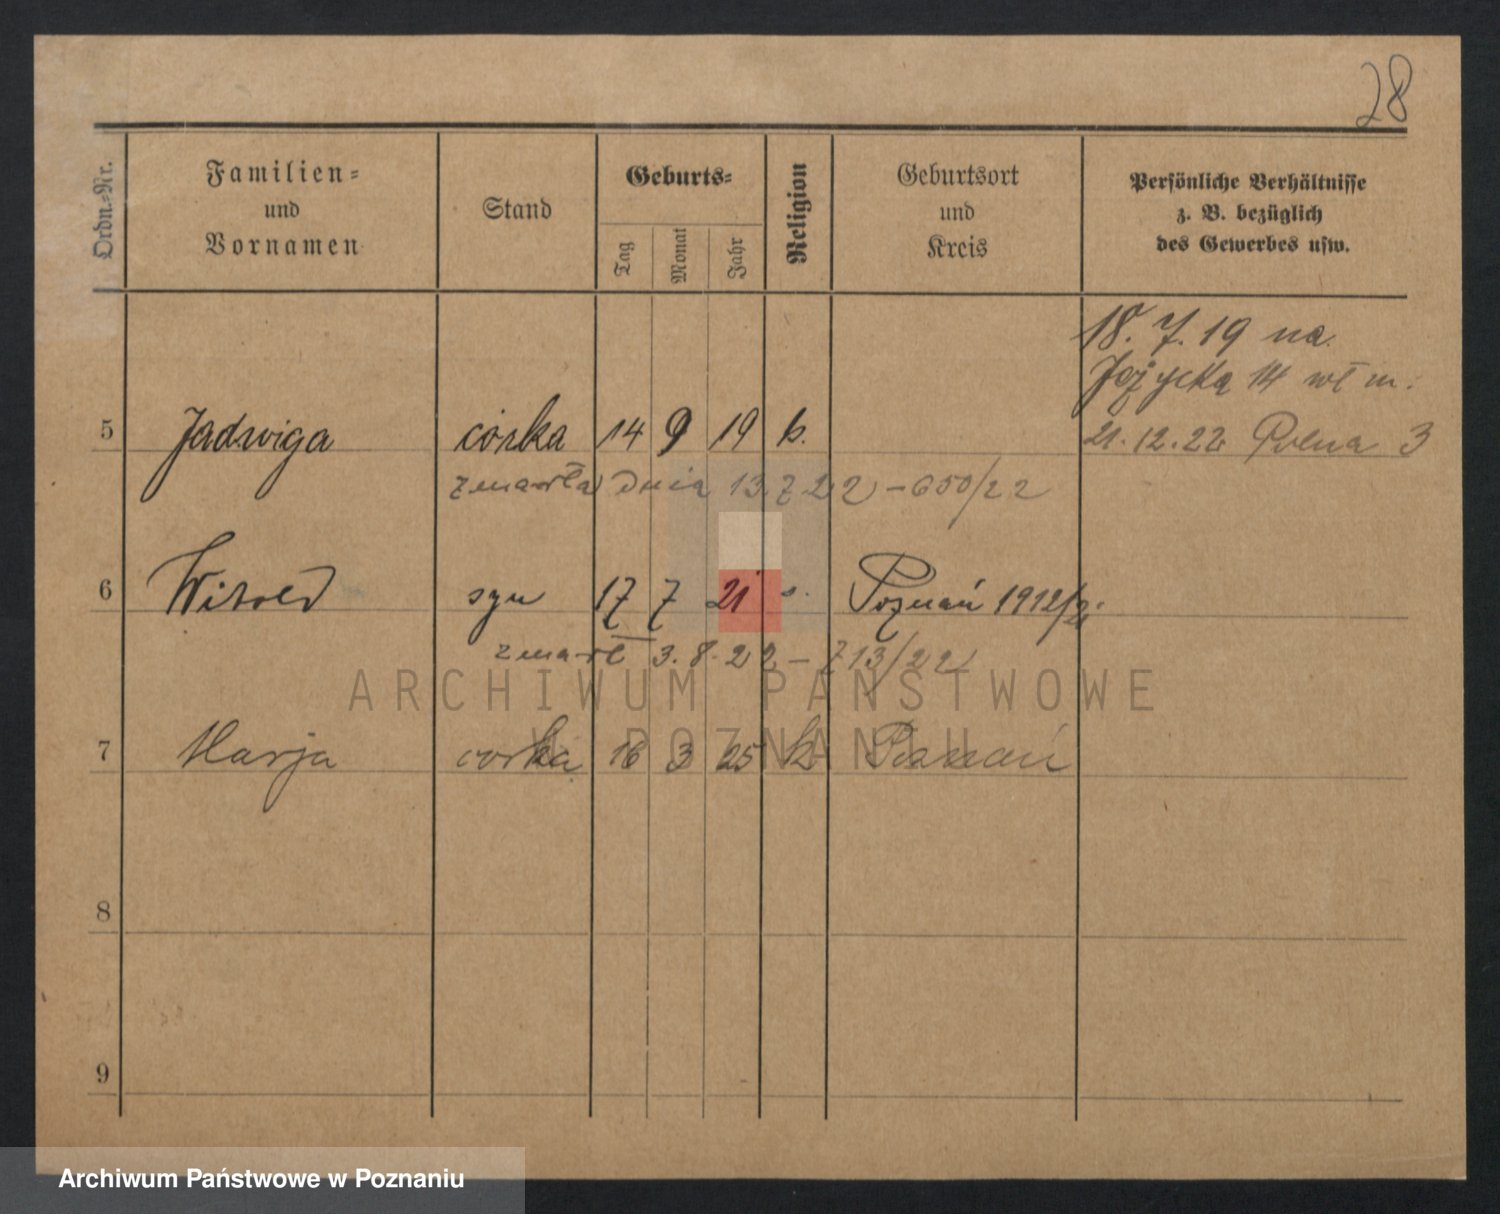 28
Ordn.-Nr.
Familien-
und
Vornamen
Stand
Geburts-
Tag
Monat
Jahr
Religion
Geburtsort
und
Kreis
Persönliche Verhältnisse
z. B. bezüglich
des Gewerbes usw.
18. 7. 19 na
14 wł m.
21. 12. 22 Polna 3
5 Jadwiga córka 14 9 19 k.
zmarła dnia 13 7 22 – 650/22
6 Witold syn 17 7 21 Poznań 1912/21
zmarł 3. 8. 22 – 713/22
7 Marja córka 16 3 25 k Poznań
8
9
ARCHIWUM PAŃSTWOWE
W POZNANIU
Archiwum Państwowe w Poznaniu